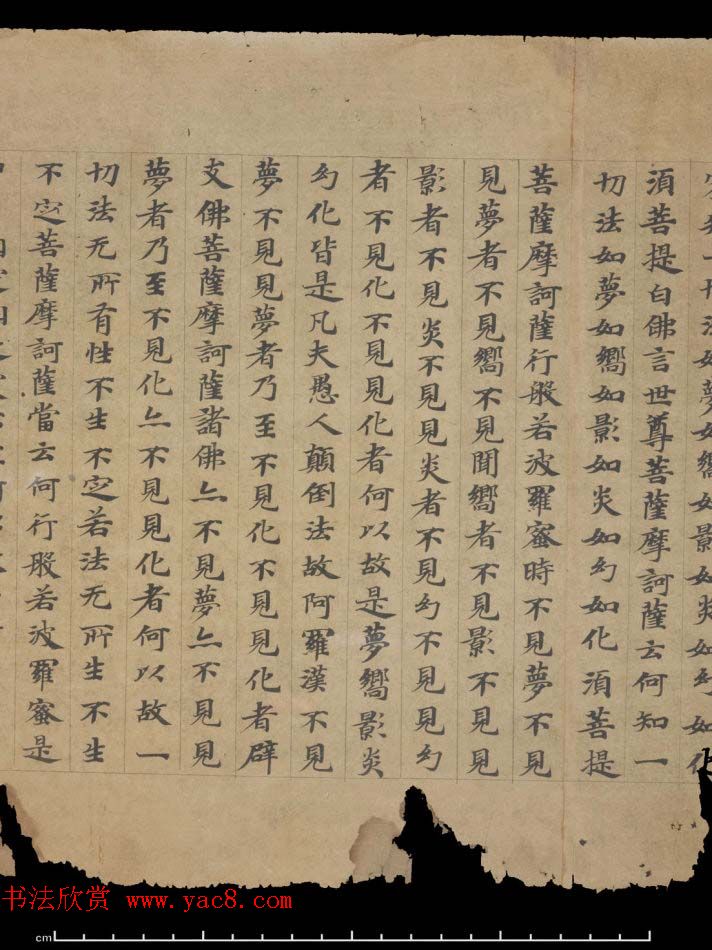 知一切法如夢如嚮如影如炎如幻如化
須菩提白佛言世尊菩薩摩訶薩云何知一
切法如夢如嚮如影如炎如幻如化須菩提
菩薩摩訶薩行般若波羅蜜時不見夢不見
見夢者不見嚮不見聞嚮者不見影不見見
影者不見炎不見見炎者不見幻不見見幻
者不見化不見見化者何以故是夢嚮影炎
幻化皆是凡夫愚人顛倒法故阿羅漢不見
夢不見見夢者乃至不見化不見見化者辟
支佛菩薩摩訶薩諸佛亦不見夢亦不見見
夢者乃至不見化亦不見見化者何以故一
切法无所有性不生不定若法无所生不生
不定菩薩摩訶薩當云何行般若波羅蜜是
书法欣赏 www.yac8.com
cm